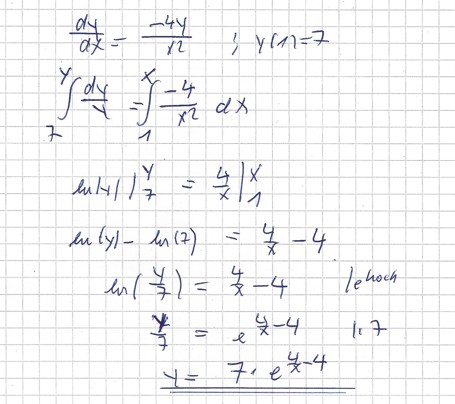 dy/dx = -4y/x² ; y(1)=7
∫₇^y dy/y = ∫₁^x -4/x² dx
ln|y| |₇^y = 4/x |₁^x
ln(y) - ln(7) = 4/x - 4
ln(y/7) = 4/x - 4 | e hoch
y/7 = e^(4/x - 4) | · 7
y = 7 · e^(4/x - 4)